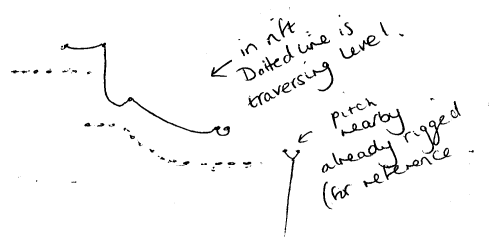 in rift
Dotted line is
traversing level.
pitch
nearby
already rigged
(for reference